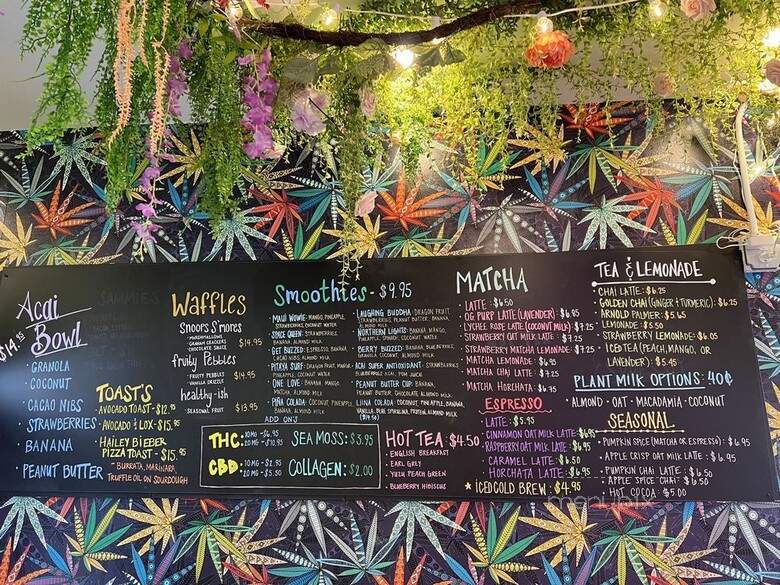 Acai
Bowl
$14.95
GRANOLA
COCONUT
CACAO NIBS
STRAWBERRIES
BANANA
PEANUT BUTTER
SAMMIES
TOAST'S
AVOCADO TOAST - $12.95
AVOCADO & LOX - $15.95
HAILEY BIEBER
PIZZA TOAST - $15.95
- BURRATA, MARINARA
TRUFFLE OIL ON SOURDOUGH
Waffles
SNOOPS S'MORES
- MARSHMALLOWS
GRAHAM CRACKERS
CHOCOLATE SAUCE
$14.95
fruity Pebbles
- FRUITY PEBBLES
- VANILLA DRIZZLE
$14.95
healthy-ish
- SEASONAL FRUIT
$13.95
Smoothies - $9.95
MAUI WOWIE: MANGO, PINEAPPLE,
STRAWBERRIES, COCONUT WATER
SPACE QUEEN: STRAWBERRIES,
ALMOND MILK
GET BUZZED: ESPRESSO, BANANA,
CACAO NIBS, ALMOND MILK
PITAYA SURF: DRAGON FRUIT, MANGO,
PINEAPPLE, COCONUT WATER
ONE LOVE: BANANA, MANGO,
MATCHA, ALMOND MILK
PIÑA COLADA: COCONUT, PINEAPPLE,
BANANA, ALMOND MILK
LAUGHING BUDDHA: DRAGON FRUIT,
STRAWBERRIES, PEANUT BUTTER, BANANA,
ALMOND MILK
NORTHERN LIGHTS: BANANA, MANGO,
PINEAPPLE, SPINACH, COCONUT WATER
BERRY BUZZED: BANANA, BLUEBERRIES,
GRANOLA, COCONUT, ALMOND MILK
ACAI SUPER ANTIOXIDANT: STRAWBERRIES
BLUEBERRIES
PEANUT BUTTER CUP: BANANA,
PEANUT BUTTER, CHOCOLATE ALMOND MILK
LUNA COLADA: COCONUT, PINEAPPLE, BANANA,
VANILLA, BLUE SPIRULINA, PROTEIN, ALMOND MILK
($14.95)
ADD ON'S
THC: 10MG - $6.95
20MG - $10.95
CBD: 10MG - $2.95
20MG - $5.50
SEA MOSS: $3.95
COLLAGEN: $2.00
HOT TEA: $4.50
ENGLISH BREAKFAST
EARL GREY
YUZU PEACH GREEN
BLUEBERRY HIBISCUS
MATCHA
LATTE: $6.50
OG PURP LATTE (LAVENDER): $6.95
LYCHEE ROSE LATTE (COCONUT MILK) $7.25
STRAWBERRY OAT MILK LATTE: $7.25
STRAWBERRY MATCHA LEMONADE: $7.25
MATCHA LEMONADE $6.95
MATCHA CHAI LATTE: $7.25
MATCHA HORCHATA $6.75
ESPRESSO
LATTE: $5.95
CINNAMON OAT MILK LATTE $6.95
RASPBERRY OAT MILK LATTE $6.95
CARAMEL LATTE: $6.50
HORCHATA LATTE: $6.95
ICED COLD BREW: $4.95
TEA & LEMONADE
CHAI LATTE: $6.25
GOLDEN CHAI (GINGER + TURMERIC): $6.25
ARNOLD PALMER: $5.65
LEMONADE: $5.50
STRAWBERRY LEMONADE: $6.05
ICED TEA (PEACH, MANGO, OR
LAVENDER): $5.45
PLANT MILK OPTIONS: 40¢
ALMOND · OAT · MACADAMIA · COCONUT
SEASONAL
PUMPKIN SPICE (MATCHA OR ESPRESSO): $6.95
APPLE CRISP OAT MILK LATTE: $6.95
PUMPKIN CHAI LATTE: $6.50
APPLE SPICE CHAI: $6.50
HOT COCOA: $5.00